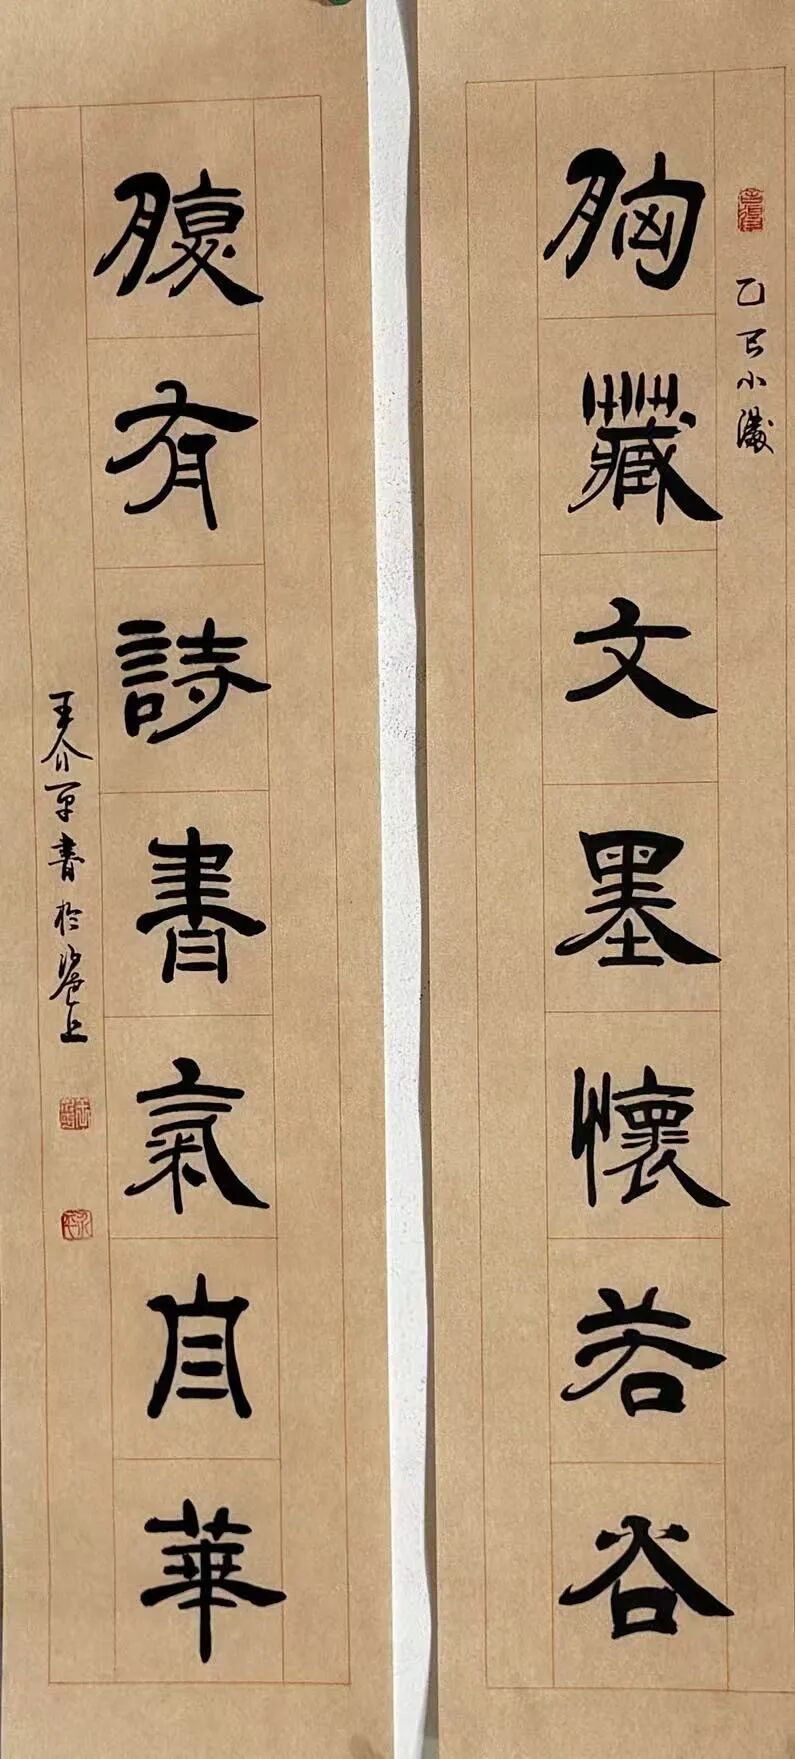 胸藏文墨懷若谷
乙巳小滿
腹有詩書氣自華
王介平書於滬上